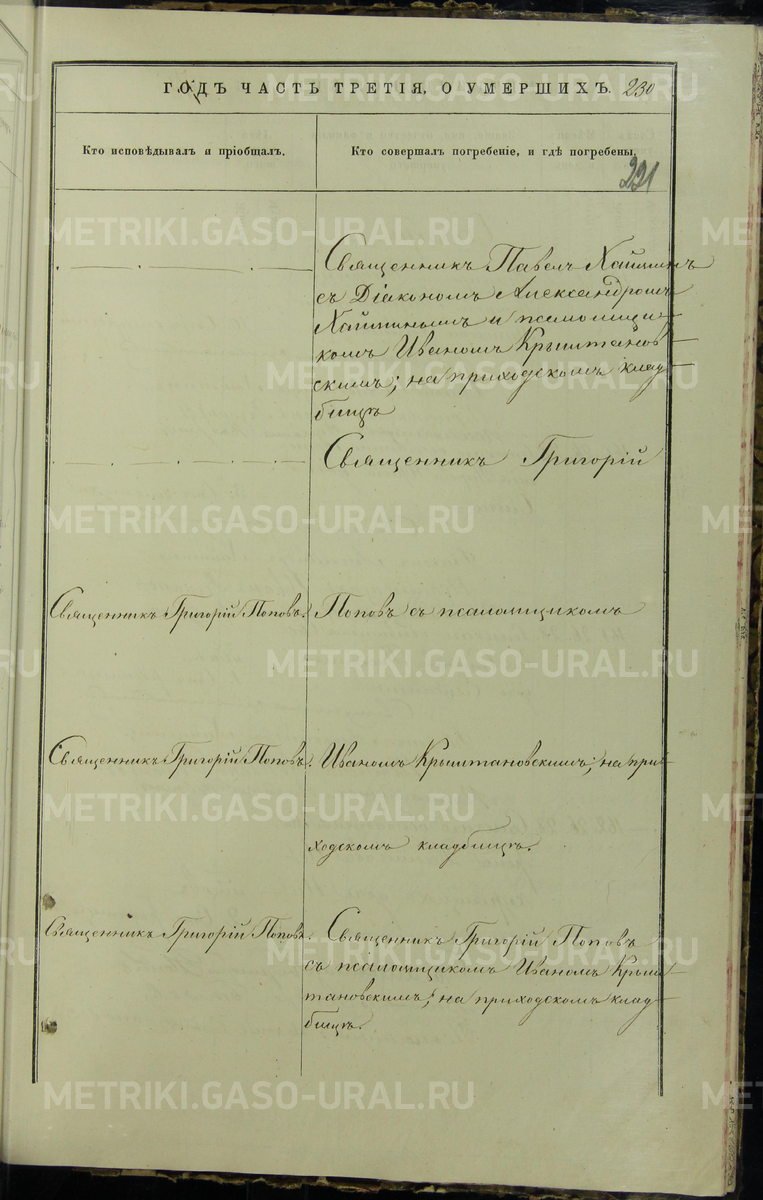 ГОДЪ ЧАСТЬ ТРЕТІЯ, О УМЕРШИХЪ. 230
Кто исповѣдывалъ и пріобщалъ.
Кто совершалъ погребеніе, и гдѣ погребены.
221
Священникъ Павелъ Хайминъ
съ Діакономъ Александромъ
Хайминымъ и псаломщи-
комъ Иваномъ Крыштанов-
скимъ; на приходскомъ клад-
бищѣ
Священникъ Григорій
Священникъ Григорій Поповъ.
Поповъ съ псаломщикомъ
Священникъ Григорій Поповъ.
Иваномъ Крыштановскимъ; на при-
ходскомъ кладбищѣ.
Священникъ Григорій Поповъ.
Священникъ Григорій Поповъ
съ псаломщикомъ Иваномъ Крыш-
тановскимъ; на приходскомъ клад-
бищѣ.
METRIKI.GASO-URAL.RU